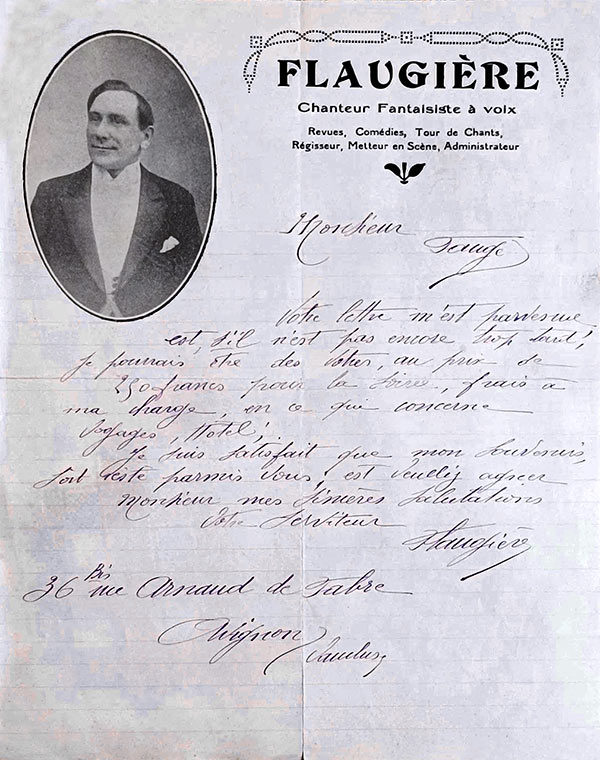 FLAUGIÈRE
Chanteur Fantaisiste à voix
Revues, Comédies, Tour de Chants,
Régisseur, Metteur en Scène, Administrateur
Monsieur
Votre lettre m'est parvenue
est, s'il n'est pas encore trop tard!
je pourrais être des votres, au prix de
250 francs pour la soirée, frais à
ma charge, en ce qui concerne
Voyages, Hotel!
Je suis satisfait que mon souvenir,
soit resté parmis vous, est veuillez agreer
Monsieur mes sincères salutations
Votre serviteur
Flaugière
36 Bis rue Arnaud de Fabre
Avignon
Vaucluse